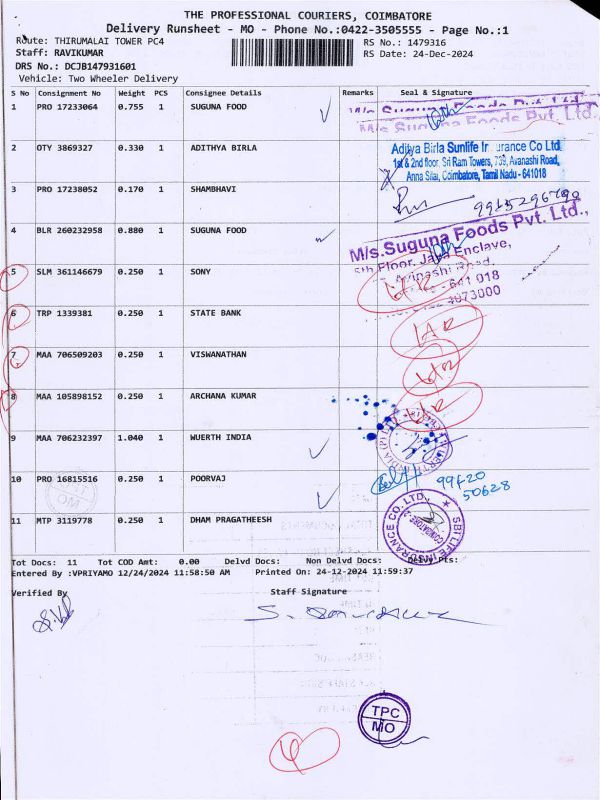 THE PROFESSIONAL COURIERS, COIMBATORE
Delivery Runsheet - MO - Phone No.:0422-3505555 - Page No.:1
Route: THIRUMALAI TOWER PC4 RS No.: 1479316
Staff: RAVIKUMAR RS Date: 24-Dec-2024
DRS No.: DCJB147931601
Vehicle: Two Wheeler Delivery
S No Consignment No Weight PCS Consignee Details Remarks Seal & Signature
1 PRO 17233064 0.755 1 SUGUNA FOOD
M/s Suguna Foods Pvt. Ltd.,
2 OTY 3869327 0.330 1 ADITHYA BIRLA
Aditya Birla Sunlife Insurance Co Ltd
1st & 2nd floor, Sri Ram Towers, 739, Avanashi Road,
Anna Silai, Coimbatore, Tamil Nadu - 641018
3 PRO 17238052 0.170 1 SHAMBHAVI
4 BLR 260232958 0.880 1 SUGUNA FOOD
M/s.Suguna Foods Pvt. Ltd.,
5th Floor, Jaya Enclave,
Avinashi Road,
641 018
5 SLM 361146679 0.250 1 SONY
6 TRP 1339381 0.250 1 STATE BANK
7 MAA 706509203 0.250 1 VISWANATHAN
8 MAA 105898152 0.250 1 ARCHANA KUMAR
9 MAA 706232397 1.040 1 WUERTH INDIA
10 PRO 16815516 0.250 1 POORVAJ
99420
50628
11 MTP 3119778 0.250 1 DHAM PRAGATHEESH
SBI LIFE INSURANCE CO. LTD.
COIMBATORE
Tot Docs: 11 Tot COD Amt: 0.00 Delvd Docs: Non Delvd Docs: Delvy Pts:
Entered By :VPRIYAMO 12/24/2024 11:58:50 AM Printed On: 24-12-2024 11:59:37
Verified By Staff Signature
TPC
MO
4